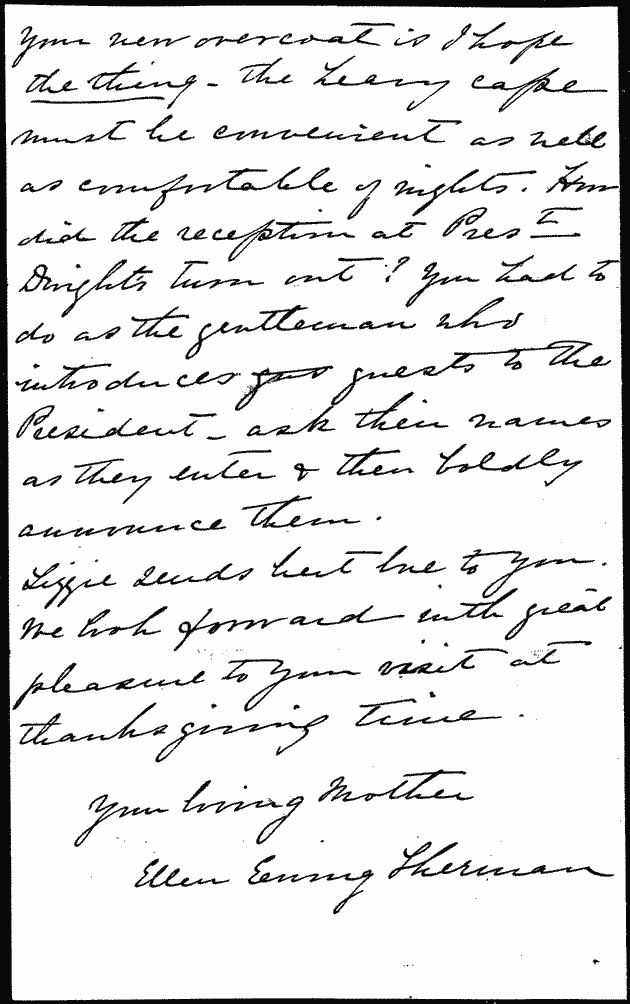 Your new overcoat is I hope
the thing - the heavy cape
must be convenient as well
as comfortable of nights. How
did the reception at Presᵗ
Dwights turn out? You had to
do as the gentleman who
introduces gus guests to the
President - ask their names
as they enter & then boldly
announce them.
Lizzie sends best love to you.
We look forward with great
pleasure to your visit at
thanksgiving time.
Your loving Mother
Ellen Ewing Sherman